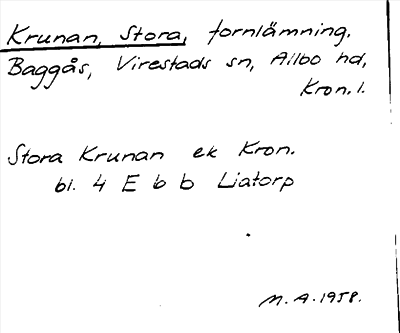 Krunan, Stora, fornlämning.
Baggås, Virestads sn, Allbo hd,
Kron. l.
Stora Krunan ek Kron.
bl. 4 E b b Liatorp
M. A. 1958.